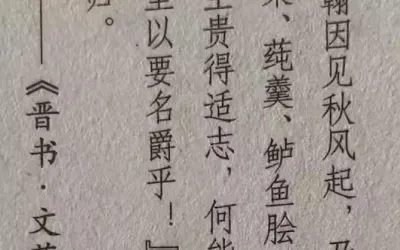 翰因见秋风起，乃
菜、莼羹、鲈鱼脍
生贵得适志，何能
里以要名爵乎！』
归。
——《晋书·文苑